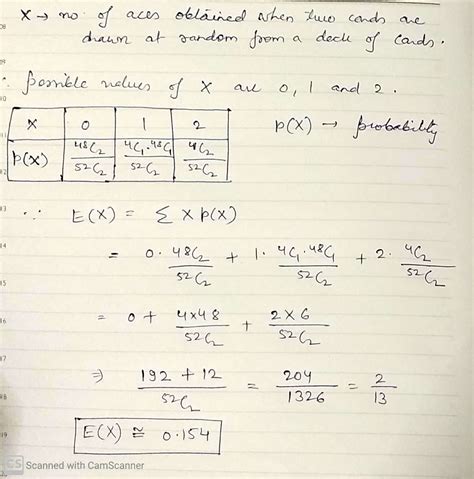 X → no. of aces obtained when two cards are
drawn at random from a deck of cards.
∴ possible values of X are 0, 1 and 2.
X 0 1 2 p(X) → probability
p(X) 48C₂/52C₂ 4C₁.48C₁/52C₂ 4C₂/52C₂
∵ E(X) = Σ X p(X)
= 0. 48C₂/52C₂ + 1. 4C₁.48C₁/52C₂ + 2. 4C₂/52C₂
= 0 + 4×48/52C₂ + 2×6/52C₂
⇒ 192 + 12/52C₂ = 204/1326 = 2/13
E(X) ≅ 0.154
CS Scanned with CamScanner